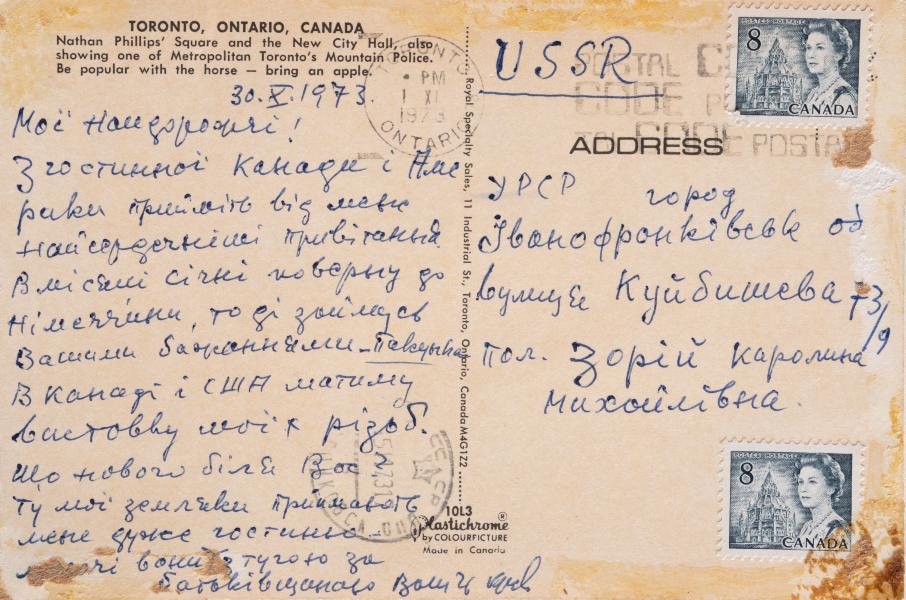 TORONTO, ONTARIO, CANADA
Nathan Phillips' Square and the New City Hall, also
showing one of Metropolitan Toronto's Mountain Police.
Be popular with the horse — bring an apple.
30.X.1973
Мої Найдорожчі!
З гостинної Канади і Аме
рики прийміть від мене
найсердечніші привітання
В місяці січні поверну до
Німеччини, тоді займусь
Вашими бажаннями –
В Канаді і США матиму
виставку моїх різьб.
Що нового біля Вас
Ту мої земляки приймають
мене дуже гостинно –
вони з тугою за
батьківщиною Ваш
TORONTO
PM
1 XI
1973
ONTARIO
Royal Specialty Sales, 11 Industrial St., Toronto, Ontario, Canada M4G1Z2
10L3
Plastichrome ®
by COLOURFICTURE
Made in Canada
USSR
POSTAL CODE
CODE POSTAL
ADDRESS
УРСР город
Івонофронківськ об
вулиця Куйбишева 73/9
пол. Зорій каролина
михойлівна.
POSTES POSTAGE
8
CANADA
POSTES POSTAGE
8
CANADA
СССР